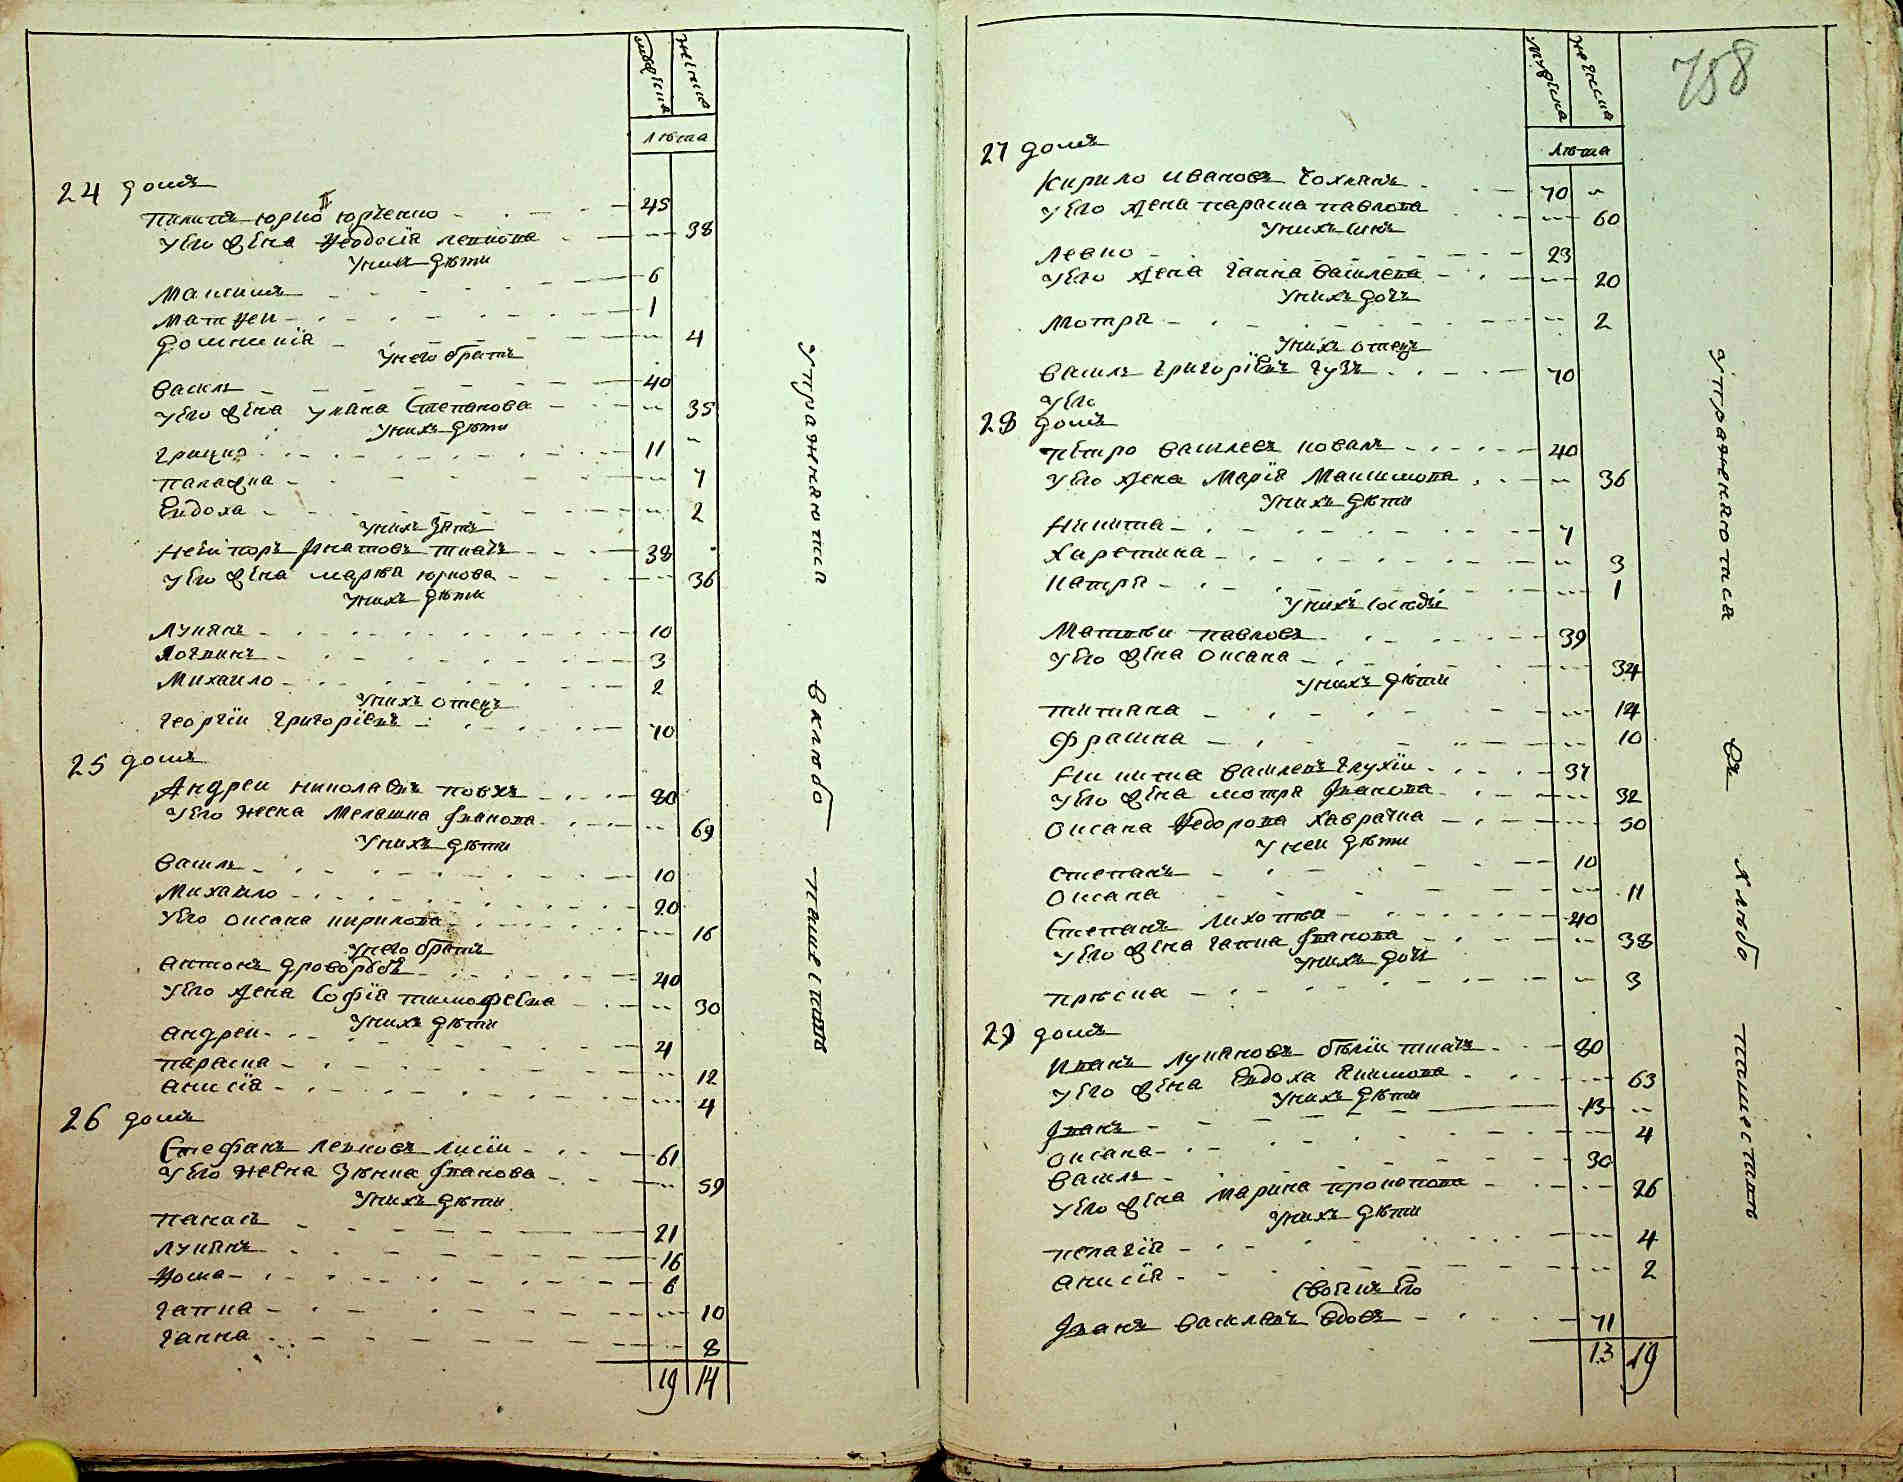 мужеска женска
лѣта
24 домъ
Никита Юрко Юрченко 45
У его жена Феодосїя Левкова 38
У нихъ дѣти
Максимъ 6
Матфеи 1
Домникїя 4
У него братъ
Василь 40
У его жена Уляна Степанова 35
У нихъ дѣти
Грицко 11
Палажка 7
Евдоха 2
У нихъ зять
Нестюръ Игнатовъ ткачъ 38
У его жена Марѣя Юркова 36
У нихъ дѣти
Лукянъ 10
Логвинъ 3
Михаило 2
У нихъ отецъ
Георгїи Григорїевъ 70
25 домъ
Андреи Николаевъ Повхъ 80
У его жена Мелашка Иванова 69
У нихъ дѣти
Василь 10
Михаило 20
У его Оксана Кирилова 16
У него братъ
Антонъ Дроворубъ 40
У его жена Софїя Тимофеевна 30
У нихъ дѣти
Андреи 4
Параска 12
Анисїя 4
26 домъ
Стефанъ Левковъ Лисїи 61
У его жена Зѣнка Иванова 59
У нихъ дѣти
Панасъ 21
Лукянъ 16
Фома 6
Гапка 10
Ганна 8
19 14
Упражняются в хлѣбо пашествѣ
мужеска женска
758
лѣта
27 домъ
Кирило Ивановъ Чохлянъ 70
У его жена Параска Павлова 60
У нихъ синъ
Левко 23
У его жена Ганна Василева 20
У нихъ дочъ
Мотря 2
У нихъ отецъ
Василь Григорїевъ Гузъ 70
У его
28 домъ
Петро Василевъ Ковалъ 40
У его жена Марїя Максимова 36
У нихъ дѣти
Никита 7
Харетина 3
Катря 1
У нихъ соседи
Матвѣи Павловъ 39
У его жена Оксана 34
У нихъ дѣти
Титяна 14
Фрашка 10
Никита Василевъ Глухїи 37
У его жена Мотря Иванова 32
Оксана Федорова Хаврачка 50
У неи дѣти
Степанъ 10
Оксана 11
Степанъ Лихотва 40
У его жена Гапка Иванова 38
У нихъ дочъ
Прѣска 3
29 домъ
Иванъ Лукяновъ Бѣлїи ткачъ 80
У его жена Евдоха Якимова 63
У нихъ дѣти
Иванъ 13
Оксана 4
Василь 30
У его жена Марина Прокопова 26
У нихъ дѣти
Пелагїя 4
Анисїя 2
Своякъ его
Иванъ Василевъ вдовъ 71
13 19
Упражняются въ хлѣбо пашествѣ